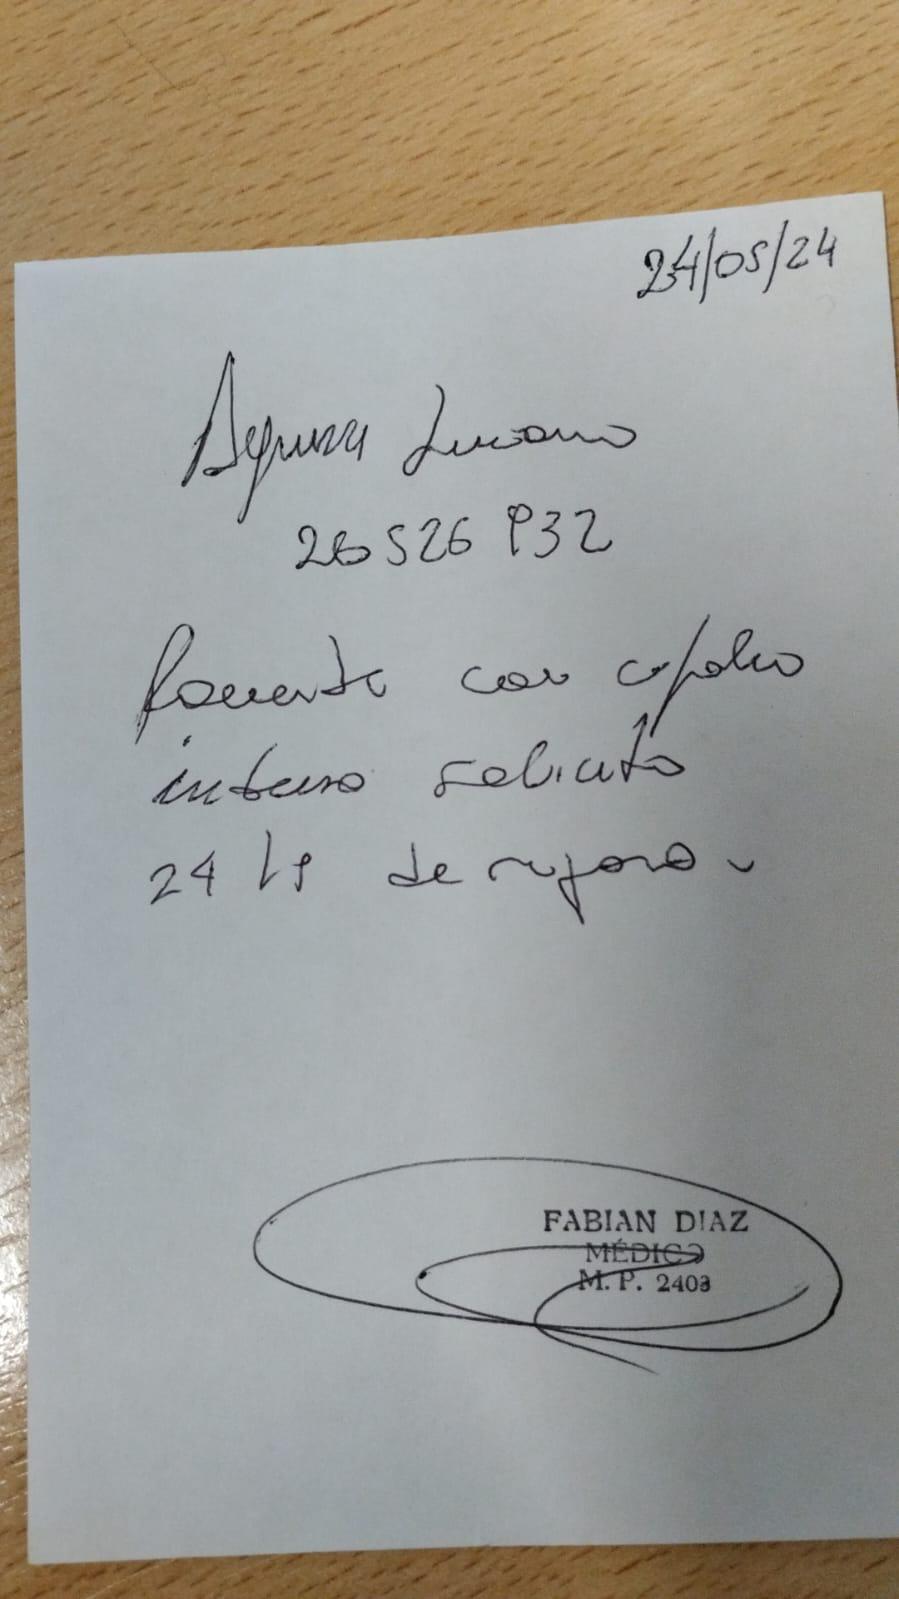 24/05/24
Luciano
26526932
Paciente con cefalea
intensa solicito
24 hs de reposo.
FABIAN DIAZ
MÉDICO
M. P. 2403